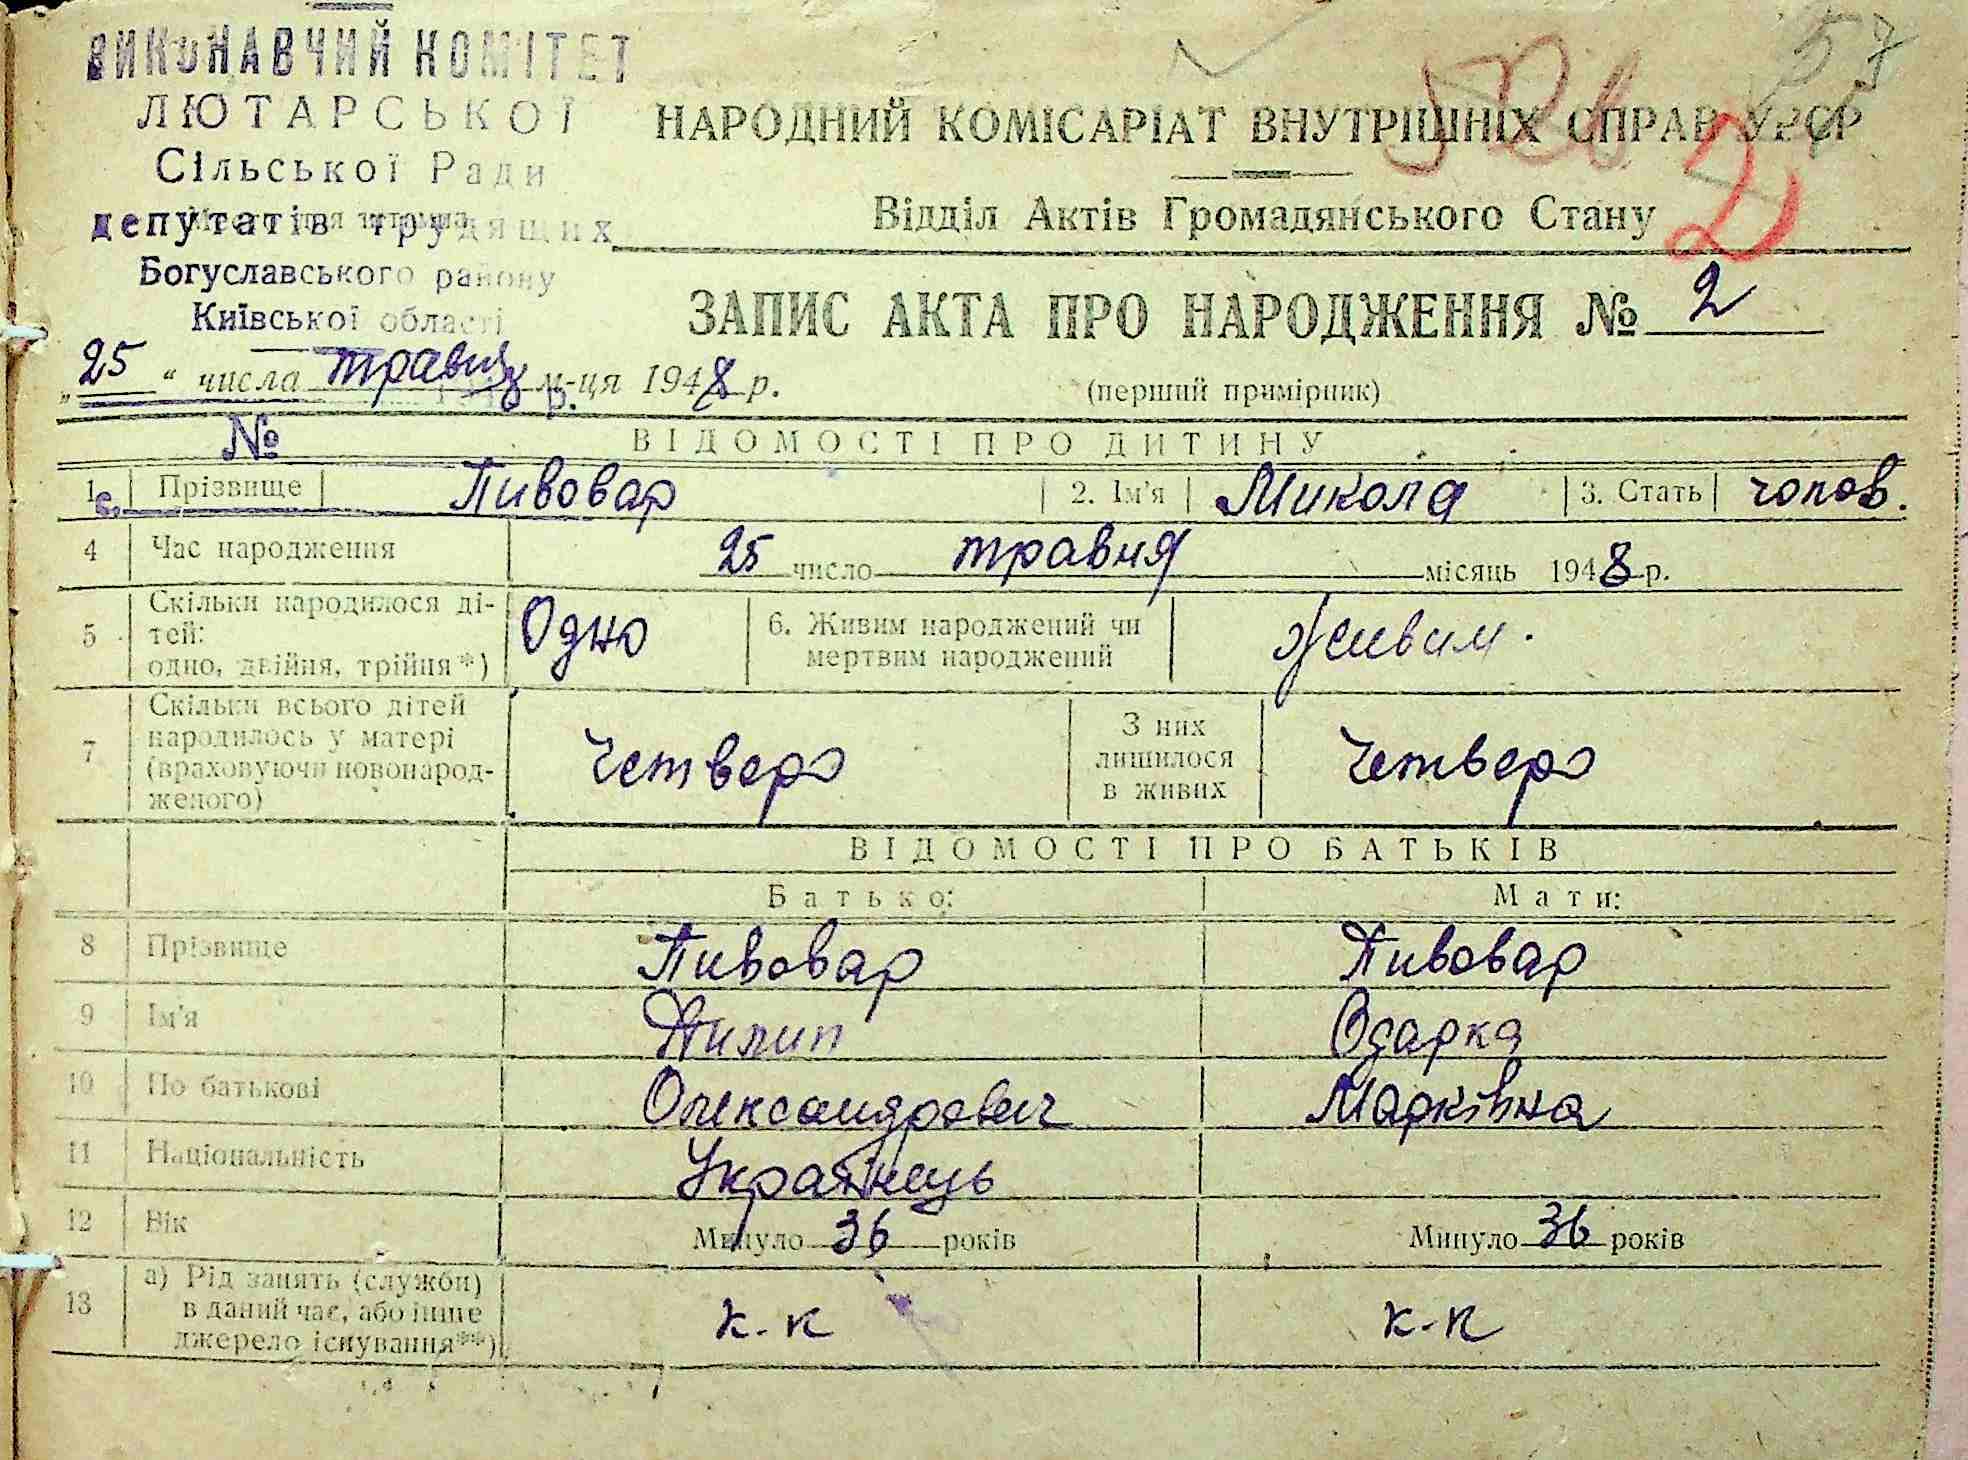 ВИКОНАВЧИЙ КОМІТЕТ
ЛЮТАРСЬКОЇ
Сільської Ради
депутатів трудящих
Богуславського району
Київської області
57
НАРОДНИЙ КОМІСАРІАТ ВНУТРІШНІХ СПРАВ УРСР
2
Відділ Актів Громадянського Стану
ЗАПИС АКТА ПРО НАРОДЖЕННЯ № 2
„25“ числа травня м-ця 1948 р.
(перший примірник)
№
ВІДОМОСТІ ПРО ДИТИНУ
1 Прізвище Пивовар 2. Ім'я Микола 3. Стать чолов.
4 Час народження 25 число травня місяць 1948 р.
5 Скільки народилося ді-
тей:
одно, двійня, трійня*)
Одно
6. Живим народжений чи
мертвим народжений
Живим.
7 Скільки всього дітей
народилось у матері
(враховуючи новонарод-
женого)
Четверо
З них
лишилося
в живих
Четверо
ВІДОМОСТІ ПРО БАТЬКІВ
Батько: Мати:
8 Прізвище Пивовар Пивовар
9 Ім'я Пилип Одарка
10 По батькові Олександрович Марківна
11 Національність Українець
12 Вік Минуло 36 років Минуло 36 років
13 а) Рід занять (служби)
в даний час, або інше
джерело існування**)
к-к к-к